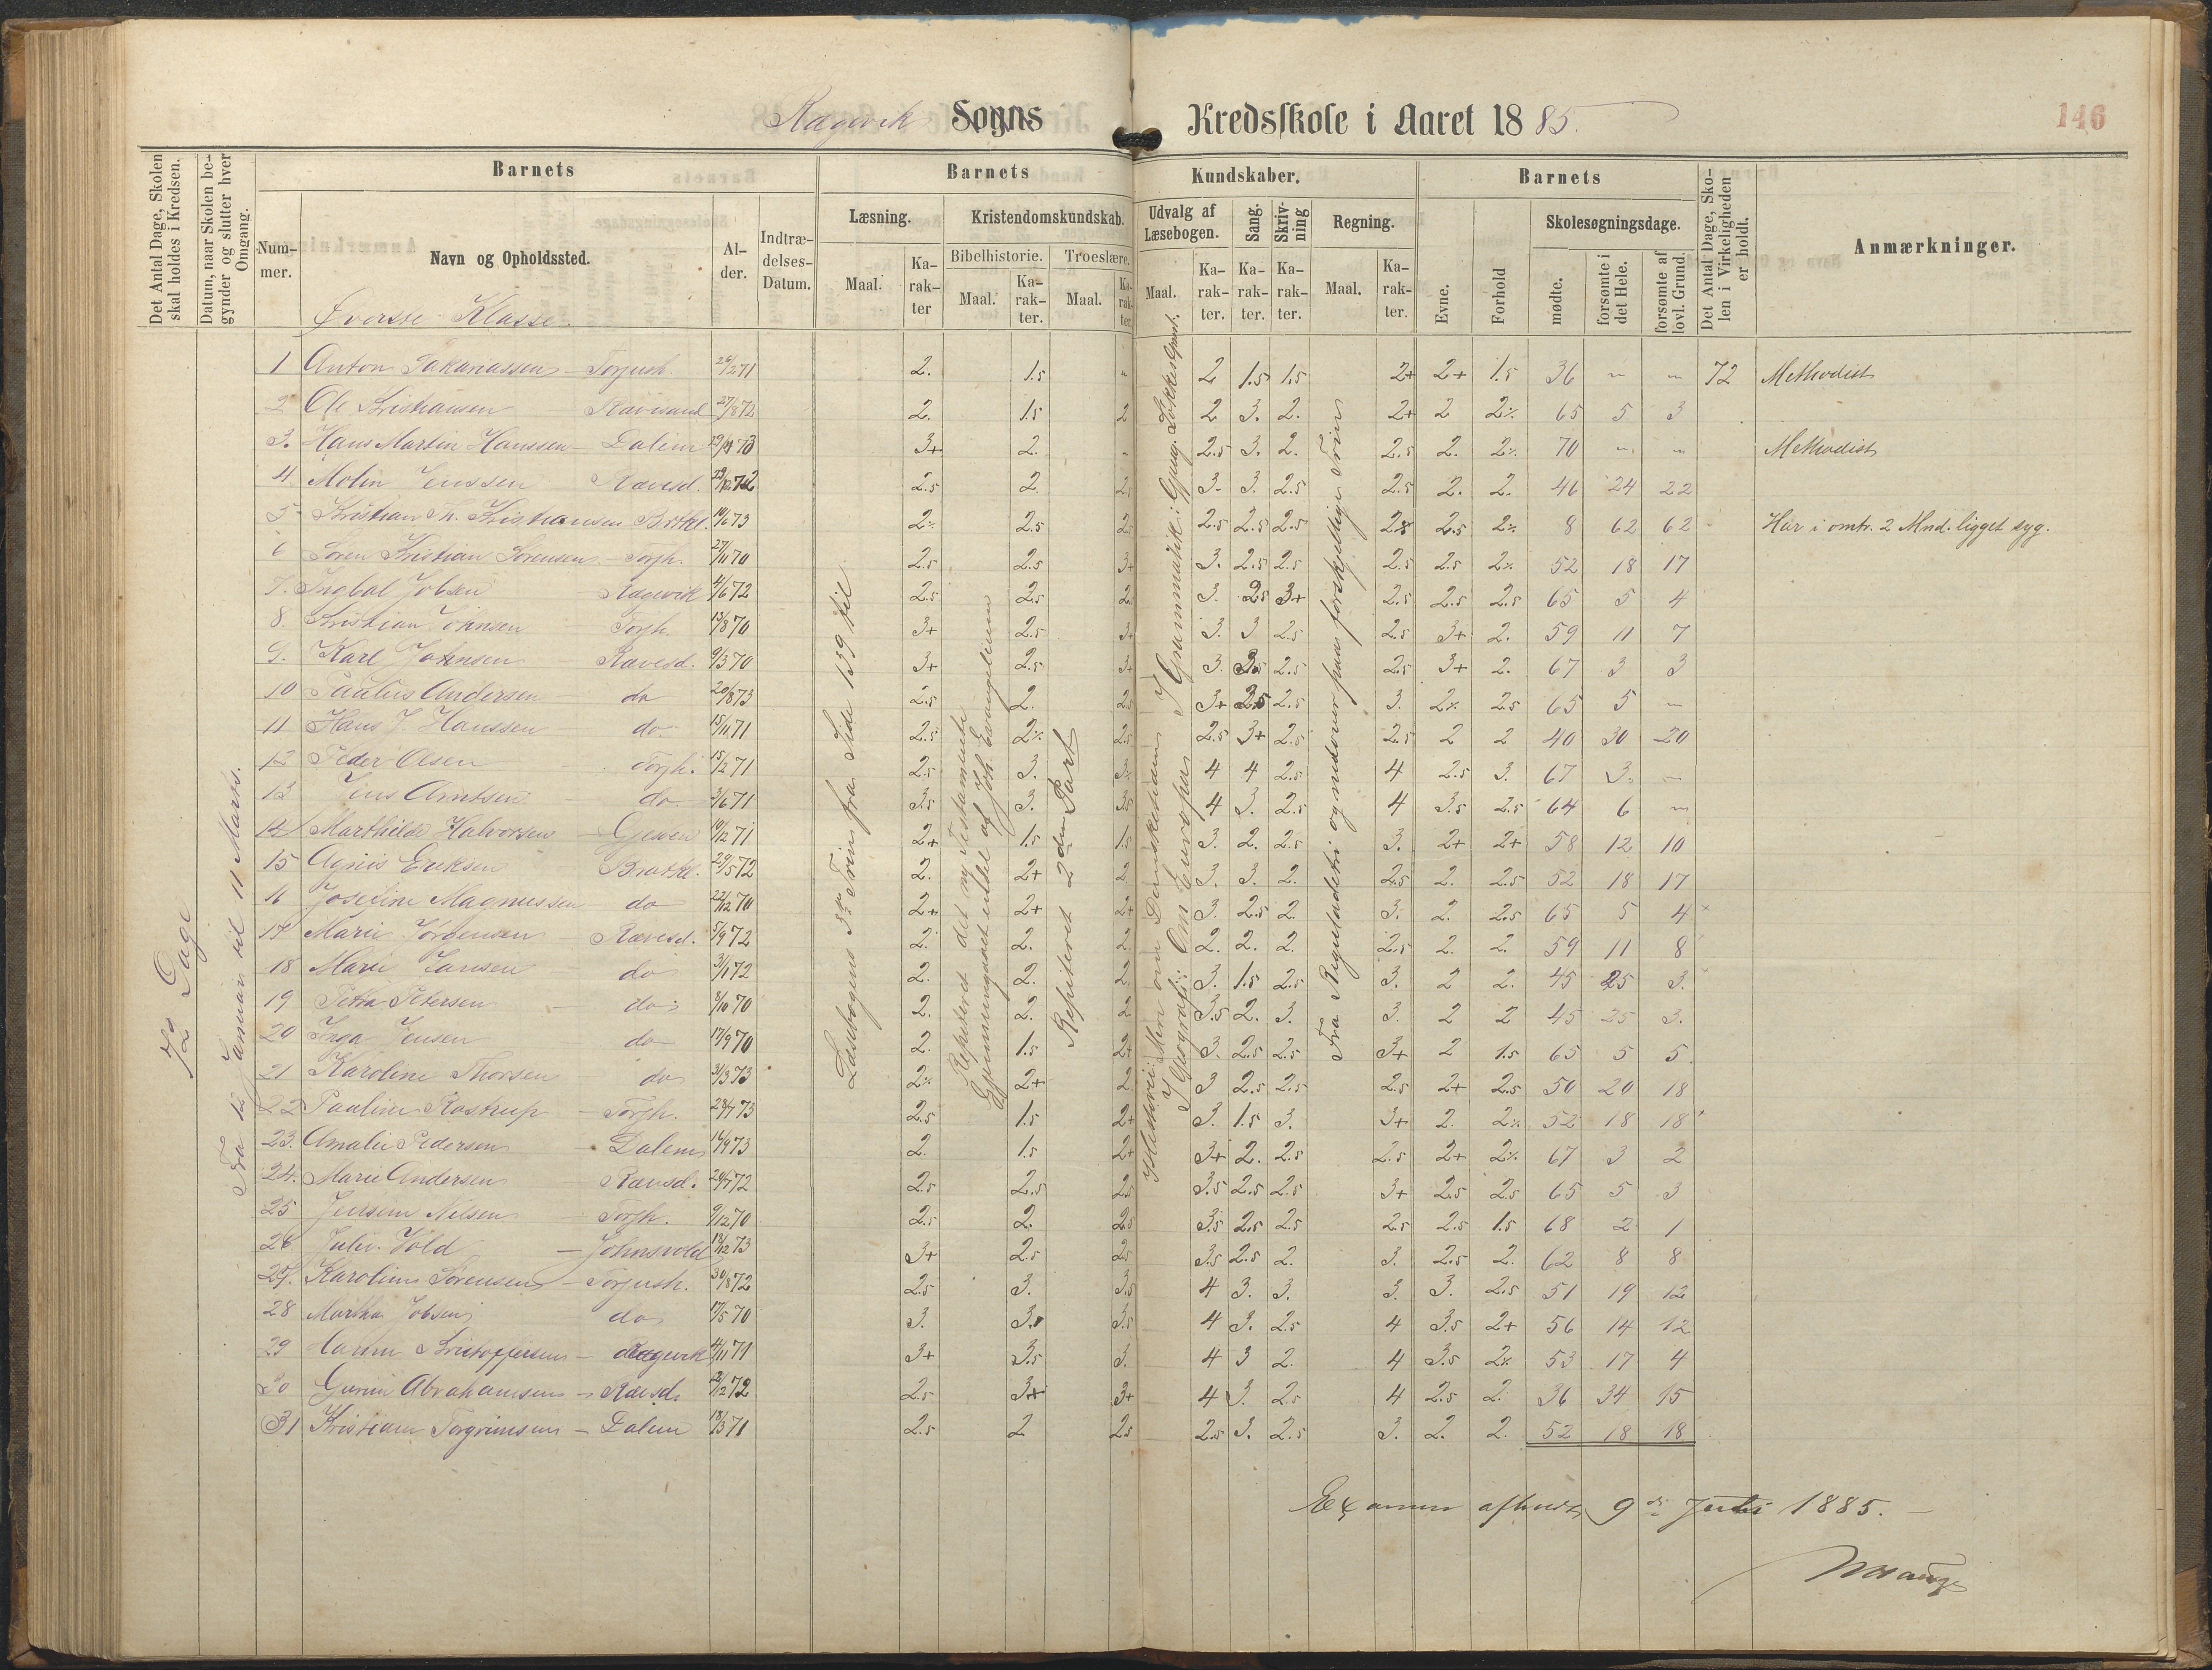 Sogns Kredsskole i Aaret 1885.
146
Det Antal Dage, Skolen skal holdes i Kredsen.
Datum, naar Skolen begynder og slutter hver Omgang.
Barnets
Nummer.
Navn og Opholdssted.
Alder.
Indtrædelses-Datum.
Barnets Kundskaber.
Læsning.
Maal.
Karakter
Kristendomskundskab.
Bibelhistorie.
Maal.
Karakter.
Troeslære.
Maal.
Karakter.
Udvalg af Læsebogen.
Maal.
Karakter.
Sang.
Karakter.
Skrivning
Karakter.
Regning.
Maal.
Karakter.
Barnets
Evne.
Forhold
Skolesøgningsdage.
mødte.
forsømte i det Hele.
forsømte af lovl. Grund.
Det Antal Dage, Skolen i Virkeligheden er holdt.
Anmærkninger.
Øverste Klasse.
72 Dage
Fra 12 Januar til 11 Marts.
Læsebogens 3die Trin fra Side 159 til
Repeteret det ny Testamente
af Joh. Evangelium
Repeteret 2den Part
Om Europa
Fra Reguladetri og nedover paa forskjellige Trin
1 Anton Sakariassen – Torjush. 26/2 71 2. 1.5 " 2 1.5 1.5 2+ 2+ 1.5 36 " " 72 Methodist
2 Ole Kristiansen Ravesand 27/8 72 2. 1.5 2 2 3. 2. 2+ 2 2% 65 5 3
3. Hans Martin Hanssen – Dalen 73 3+ 2. " 2.5 3. 2. 2.5 2. 2% 70 " " Methodist
4 Ravesd. 72 2.5 2. 2.5 3. 3. 2.5 2.5 2. 2. 46 24 22
5 Kristian Kristiansen 14/6 73 2% 2.5 2.5 2.5 2.5 2.5 2.5 2% 8 62 62 Har i omtr. 2 Mnd. ligget syg.
6 Søren Kristian Sørensen – Torjh. 27/11 70 2.5 2.5 3+ 3. 2.5 2.5 2.5 2.5 2% 52 18 17
7. Jobsen 4/6 72 2.5 2.5 2. 3. 2.5 3+ 2.5 2.5 2.5 65 5 4
8. Kristian Johnsen Torjh. 13/8 70 3+ 2.5 3+ 3. 3 2.5 2.5 3+ 2. 59 11 7
9. Karl Johnsen Ravesd. 9/3 70 3+ 2.5 3+ 3. 2.5 2.5 3+ 2. 67 3 3
10 Paulus Andersen do 20/8 73 2.5 2. 2.5 3+ 2.5 2.5 3. 2% 2.5 65 5 "
11 Hans J. Hanssen – do 15/11 71 2.5 2% 2.5 2.5 3+ 2.5 2.5 2 2 40 30 20
12 Peder Olsen Torjh. 15/2 71 2.5 3. 3% 4 4 2.5 4 2.5 3. 67 3. "
13 Jens Arntsen – do 3/6 71 3.5 3. 3.5 4 3. 2.5 4 3.5 2.5 64 6 "
14 Marthilde Halvorsen – 10/12 71 2+ 1.5 1.5 3. 2. 2.5 3. 2+ 2+ 58 12 10
15 Eriksen 29/5 72 2. 2+ 2. 3. 3. 2. 2.5 2. 2.5 52 18 17
16 Josefine Magnussen do 22/12 70 2+ 2+ 2+ 3. 2.5 2. 3. 2. 2.5 65 5 4
17 Marie Jørgensen – Ravesd. 5/9 72 2. 2. 2. 2. 2. 2. 2.5 2. 2. 59 11 8
18 Marie Jansen do 3/1 72 2. 2. 2. 3. 1.5 2.5 3. 2 2. 45 25 3.
19 Petra Petersen – do 8/10 70 2. 2. 2 3.5 2. 3. 3. 2 2 45 25 3.
20 Inga Jensen – do 17/9 70 2. 1.5 2+ 3. 2.5 2.5 3+ 2 1.5 65 5 5
21 Karoline Thorsen do 31/3 73 2% 2+ 2 3 2.5 2.5 2.5 2+ 2.5 50 20 18
22 Pauline Rostrup – Torjh. 24/7 73 2.5 1.5 2+ 3. 1.5 3. 3+ 2. 2% 52 18 18
23. Amalie Pedersen – Dalen 14/9 73 2. 1.5 2+ 3+ 2. 2.5 2.5 2+ 2% 67 3 2
24. Marie Andersen Ravesd. 72 2.5 2.5 2.5 3.5 2.5 2.5 3+ 2.5 2.5 65 5 3
25 Nilsen – Torjh. 9/12 70 2.5 2. 2.5 3.5 2.5 2.5 2.5 2.5 1.5 68 2 1
26. Julie Vold – Johnsvold 18/12 73 3+ 2.5 2.5 3.5 2.5 2. 3. 2.5 2. 62 8 8
27. Karoline Sørensen – Torjush. 30/8 72 2.5 3. 3.5 4 3. 3. 3. 3. 2.5 51 19 12
28 Martha Jobsen do 17/5 70 3. 3.5 3.5 4 3. 2.5 4 3.5 2+ 56 14 12
29 Kristoffersen – 4/11 71 3+ 3.5 3. 4 3 2. 4 3.5 2% 53 17 4
30 Abrahamsen – Ravesd. 72 2.5 3+ 3+ 4 3. 2.5 4 2.5 2. 36 34 15
31 Kristiane Torgrimsen – Dalen 18/3 71 2.5 2 2.5 2.5 3. 2.5 3. 2. 2. 52 18 18
Examen afholdt 9de Juli 1885.